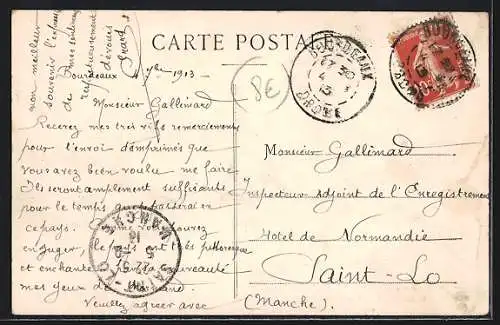 CARTE POSTALE
8€
BORDEAUX
GIRONDE
Bordeaux 1913
Monsieur Gallimard
Recevez mes très vifs remerciements
pour l'envoi d'imprimés que
vous avez bien voulu me faire
Ils seront amplement suffisants
pour le temps que
ce pays. vous pouvez
en juger, le pays est très pittoresque
et enchante par sa nouveauté
mes yeux de Normand.
Veuillez agréer avec
non meilleur
souvenir l'expression
de mes sentiments
respectueusement
dévoués
Monsieur Gallimard
Inspecteur Adjoint de l'Enregistrement
Hotel de Normandie
Saint-Lo
(Manche)
MANCHE